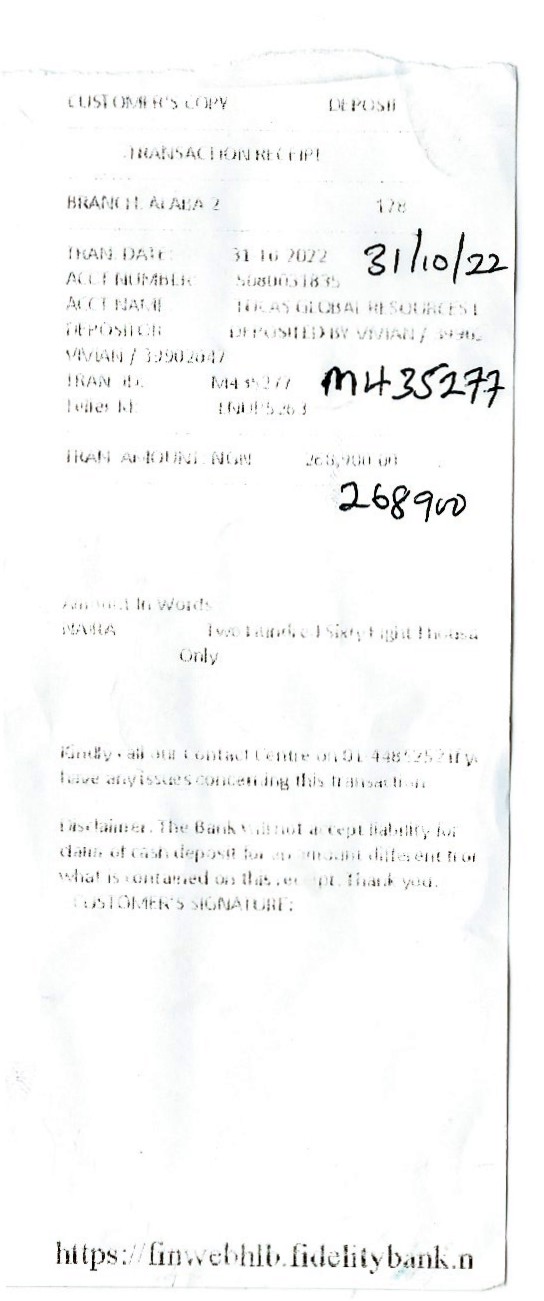 CUSTOMER'S COPY DEPOSIT
TRANSACTION RECEIPT
BRANCH: ALABA 2 178
TRAN. DATE: 31-10-2022 31/10/22
ACCT NUMBER:
ACCT NAME GLOBAL RESOURCES
DEPOSITOR DEPOSITED BY VIVIAN /
VIVIAN /
TRAN. ID: M435277 M435277
Teller Id:
TRAN. AMOUNT: NGN 268,900.00
268900
Amount In Words
NAIRA Two Hundred Sixty Eight Thousa
Only
Kindly call our Contact Centre on if y
have any issues concerning this transaction
Disclaimer: The Bank will not accept liability for
claim of cash deposit for an amount different from
what is contained on this receipt. Thank you.
CUSTOMER'S SIGNATURE:
https://finwebhlb.fidelitybank.n